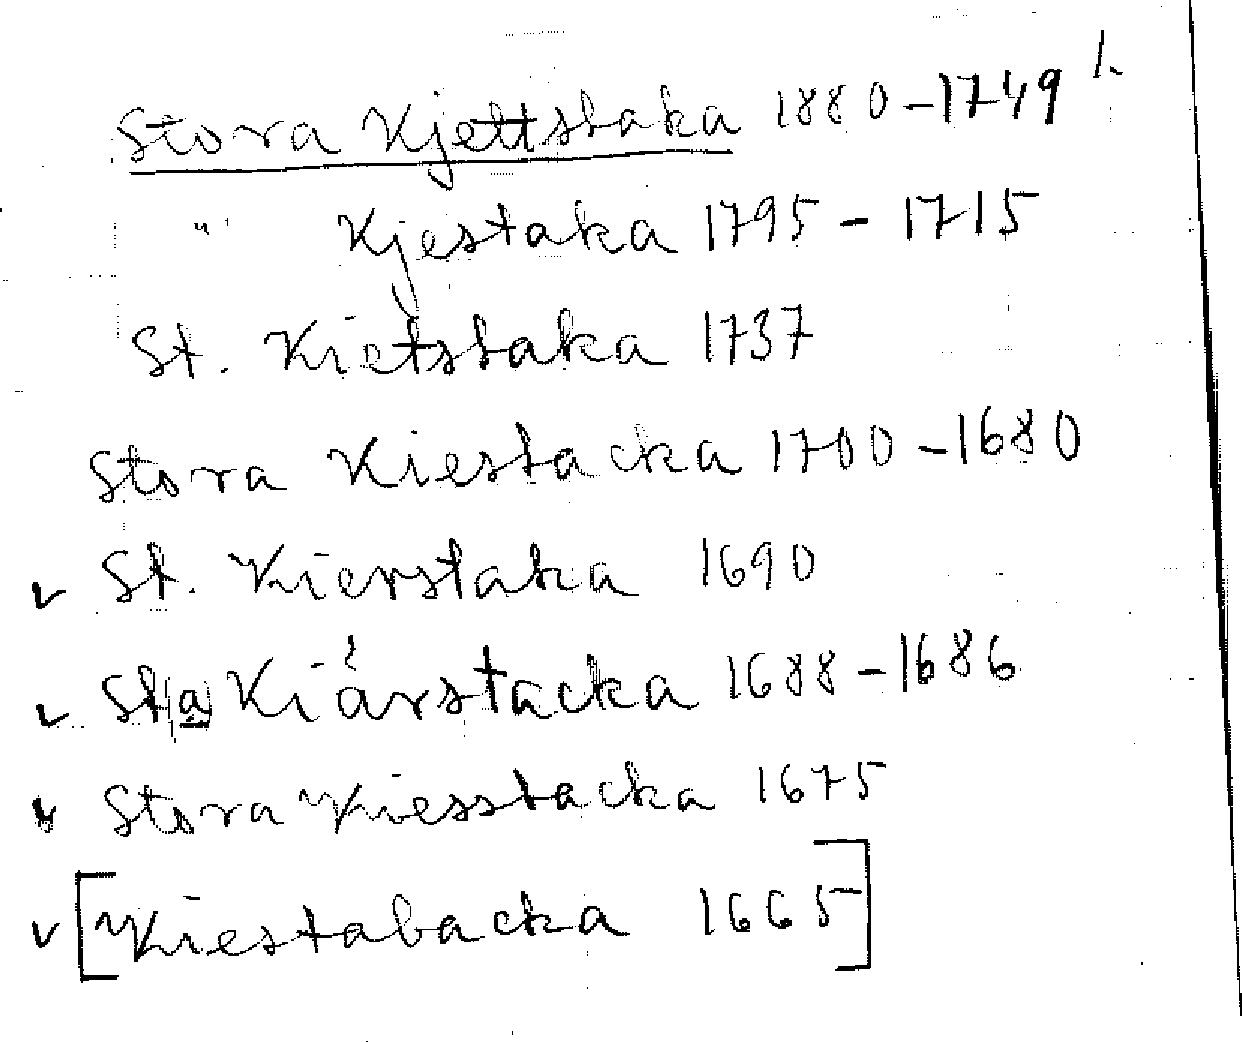 1.
Stora Kjettstaka 1880-1749
" Kjestaka 1795 - 1715
St. Kietstaka 1737
Stora Kiestacka 1700-1680
v St. Kierstaka 1690
v Sta Kiärstacka 1688-1686
v Stora Kiesstacka 1675
v [Kiestabacka 1665]